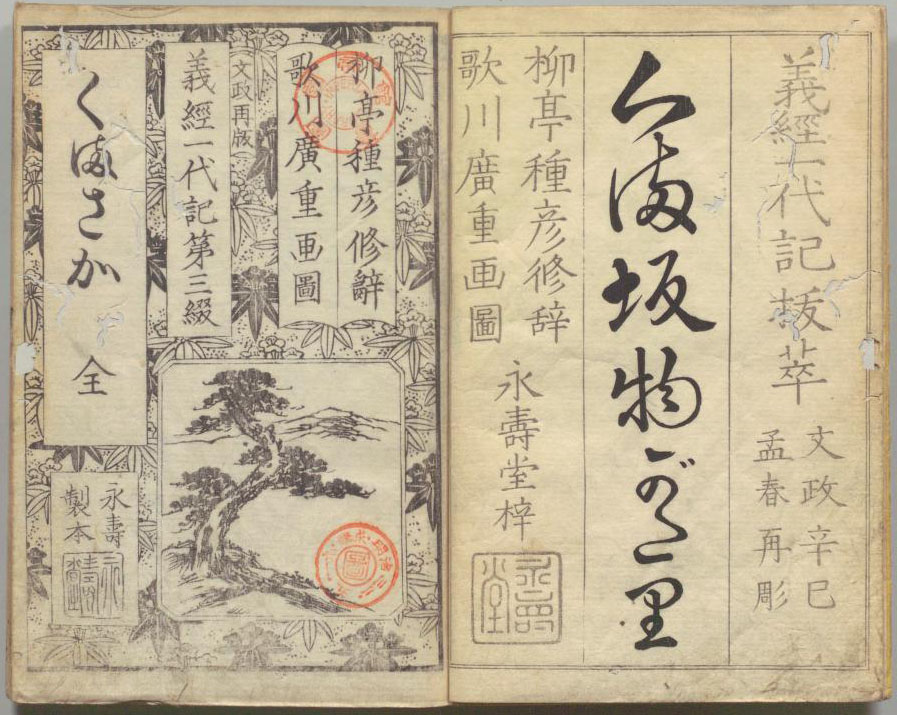 義經一代記拔萃
文政辛巳
孟春再彫
くま坂物がたり
柳亭種彦修辞
歌川廣重画圖
永壽堂梓
永壽堂
柳亭種彦修辭
歌川廣重画圖
文政再版
義經一代記第三綴
くまさか 全
永壽
製本